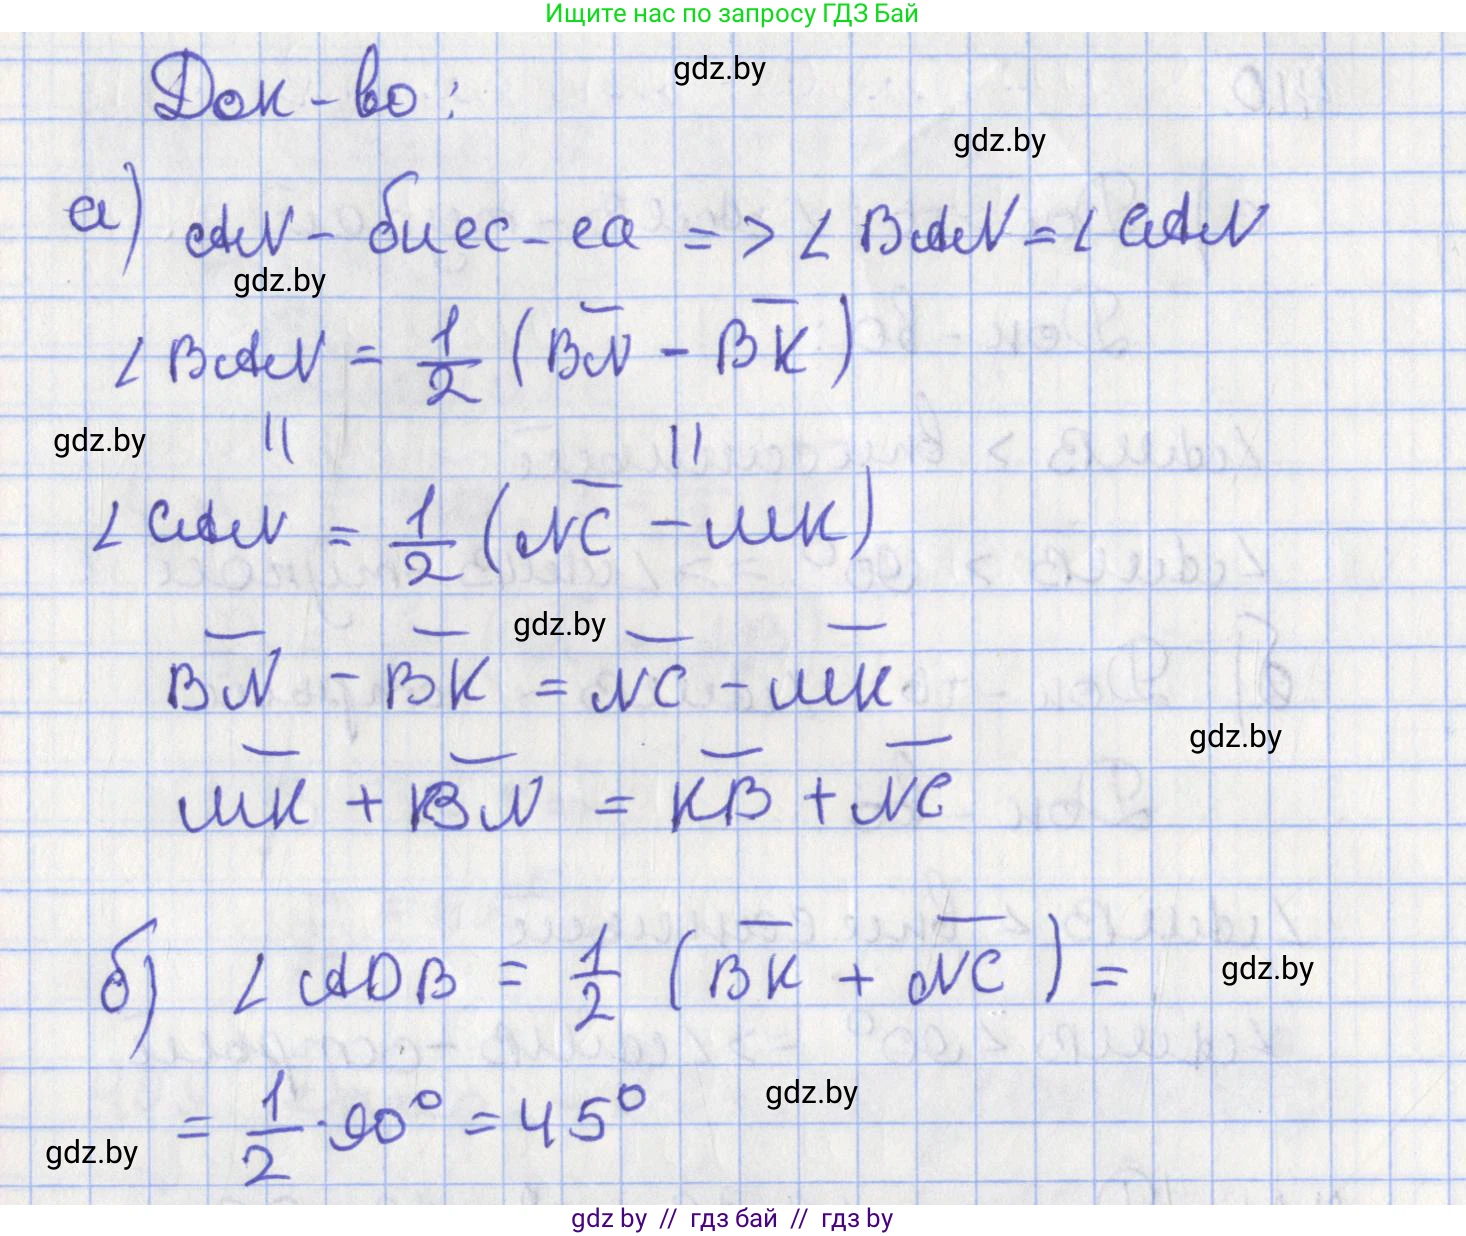 Ищите нас по запросу ГДЗ Бай
Док-во:
gdz.by
gdz.by
а) AN - биес-са => ∠BAN = ∠CAN
gdz.by
∠BAN = 1/2 (B͝N - B͝K)
gdz.by
|| ||
∠CAN = 1/2 (N͝C - MK)
gdz.by
B͝N - B͝K = N͝C - M͝K
gdz.by
M͝K + B͝N = K͝B + N͝C
б) ∠ADB = 1/2 (B͝K + N͝C) =
gdz.by
= 1/2 · 90° = 45°
gdz.by
gdz.by
gdz by // гдз бай // гдз by